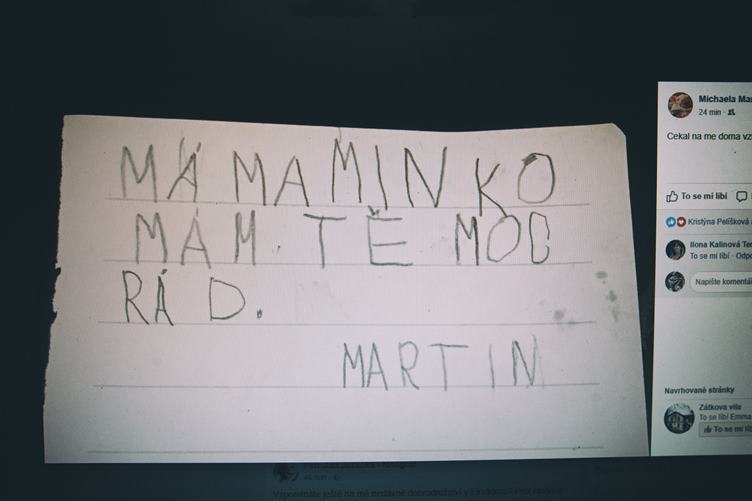 MÁ MAMINKO
MÁM TĚ MOC
RÁD.
MARTIN
Michaela
24 min
Cekal na me doma
To se mi líbí
Kristýna Pelíšková
Ilona Kalinová
To se mi líbí ·
Napište
Navrhované stránky
Zátkova vila
To se líbí
To se mi